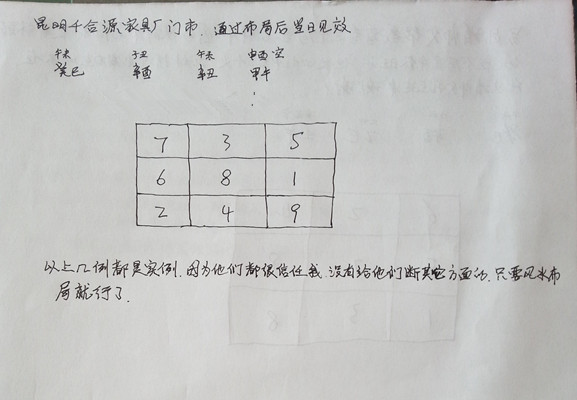 昆明千合源家具厂门市，通过布局后当日见效
午未 子丑 午未 申酉空
癸巳 辛酉 辛丑 甲午
7 3 5
6 8 1
2 4 9
以上几例都是实例，因为他们都很信任我，没有给他们断其它方面的，只要风水布
局就行了.